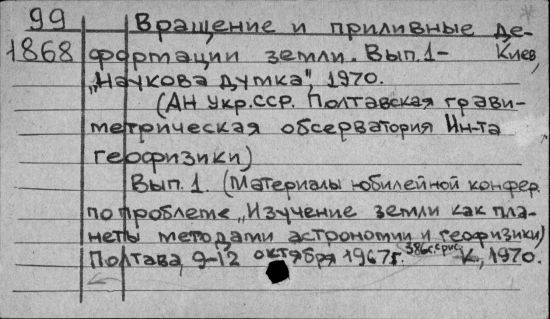 99 Вращение и приливные де-
1868 формации земли. Вып. 1- Киев,
„Наукова думка", 1970.
(АН Укр.ССР. Полтавская грави-
метрическая обсерватория Ин-та
геофизики)
Вып. 1. (Материалы юбилейной конфер.
по проблеме „Изучение земли как пла-
неты методами астрономии и геофизики)
Полтава, 9-12 октября 1967г. 386с.с рис. К., 1970.